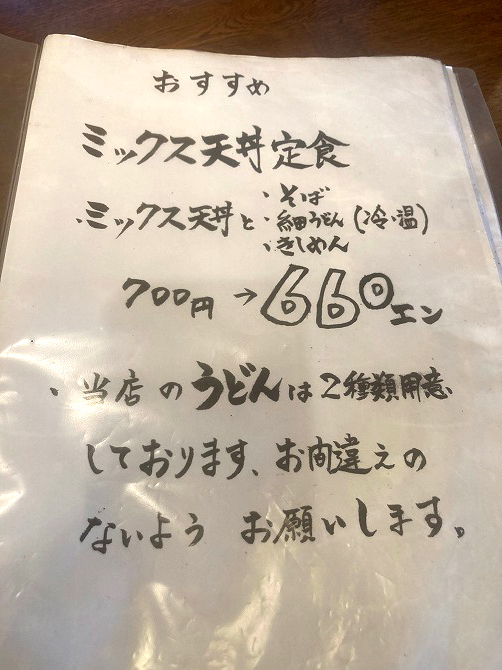 おすすめ
ミックス天丼定食
・ミックス天丼と
・そば
・細うどん (冷・温)
・きしめん
700円→660エン
・当店のうどんは2種類用意
しております、お間違えの
ないよう お願いします。